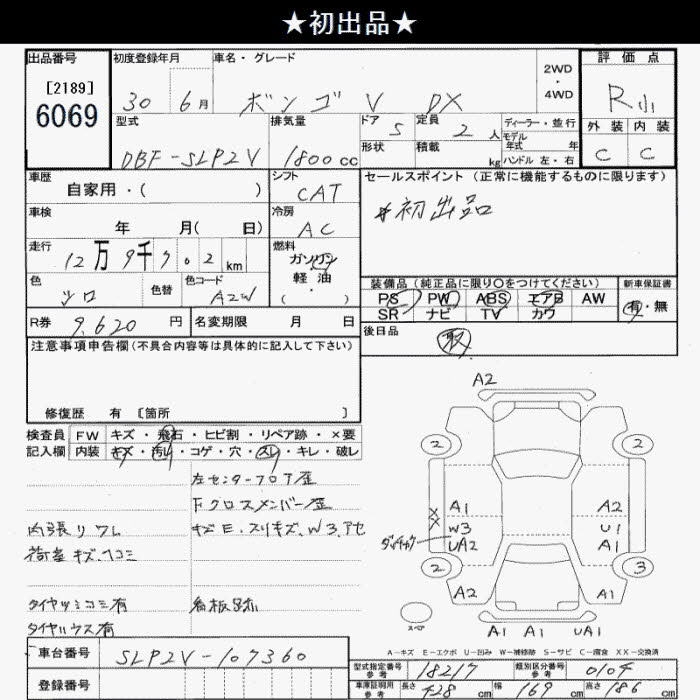 ★初出品★
出品番号
[2189]
6069
初度登録年月
30 6月
車名・グレード
ボンゴ V DX
2WD
・
4WD
評価点
R小
外装 内装
C C
型式
DBF-SLP2V
排気量
1800cc
ドア 5
形状
定員 2人
積載 kg
ディーラー・並行
モデル年式 年
ハンドル 左・右
車歴
自家用・( )
シフト
CAT
セールスポイント (正常に機能するものに限ります)
*初出品
車検
年 月( 日)
冷房
AC
走行
12万9千702km
燃料
ガソリン
軽油
・( )
色
シロ
色替
色コード
A2W
装備品(純正品に限り○をつけてください)
PS PW ABS エアB AW
SR ナビ TV カワ
新車保証書
有・無
R券 9,620円
名変期限 月 日
後日品
取
注意事項申告欄(不具合内容等は具体的に記入して下さい)
修復歴 有 [箇所 ]
検査員記入欄
FW キズ・飛石・ヒビ割・リペア跡・×要
内装 キズ・汚れ・コゲ・穴・スレ・キレ・破レ
左センターフロア歪
Fクロスメンバー歪
内張りワレ
キズE.スリキズ、W3.アセ
荷室キズ.ヘコミ
タイヤツミコミ有
看板跡
タイヤハウス有
A2
2 2
A1 A2
XX W3 U1
UA2 A1
2 3
A2 A1
スペア
A1 A1 UA1
A-キズ E-エクボ U-凹み W-補修跡 S-サビ C-腐食 XX-交換済
車台番号
SLP2V-107360
登録番号
型式指定番号 参考 18217
類別区分番号 参考 0104
車庫証明用 参考 長さ 428cm 幅 169cm 高さ 186cm